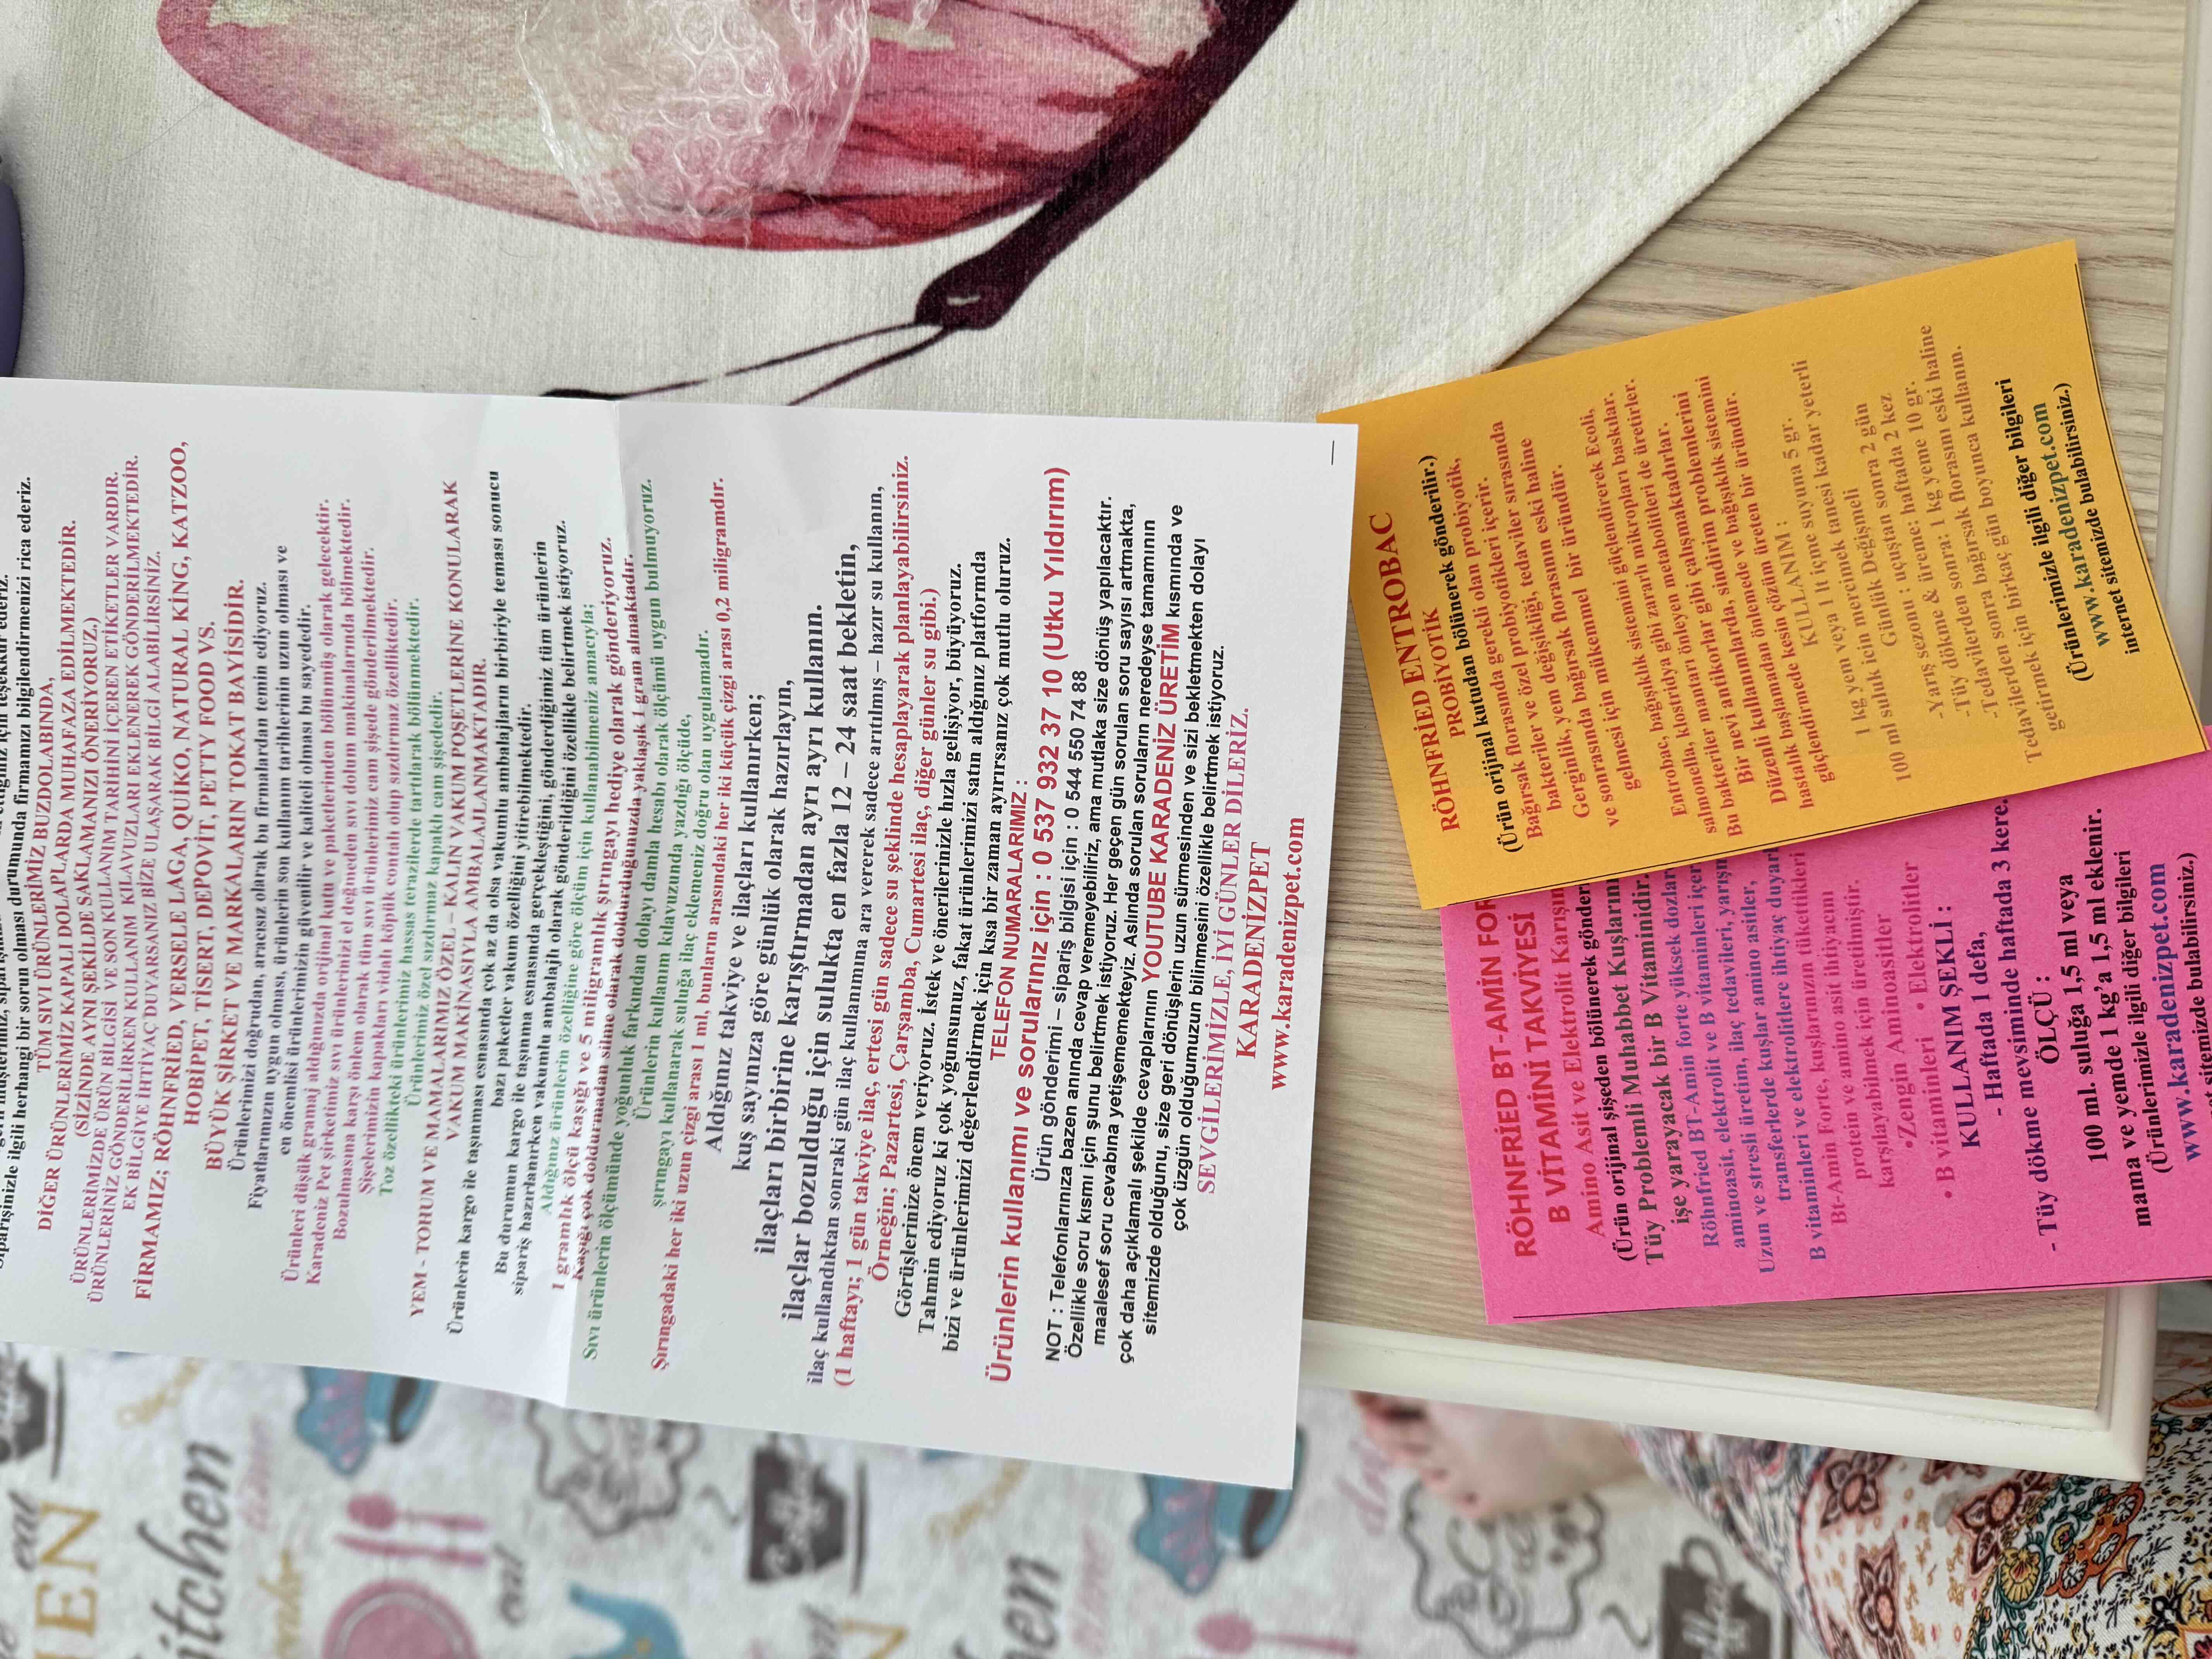 TÜM SIVI ÜRÜNLERİMİZ BUZDOLABINDA,
DİĞER ÜRÜNLERİMİZ KAPALI DOLAPLARDA MUHAFAZA EDİLMEKTEDİR.
(SİZİNDE AYNI ŞEKİLDE SAKLAMANIZI ÖNERİYORUZ.)
ÜRÜNLERİMİZDE ÜRÜN BİLGİSİ VE SON KULLANIM TARİHİNİ İÇEREN ETİKETLER VARDIR.
ÜRÜNLERİNİZ GÖNDERİLİRKEN KULLANIM KILAVUZLARI EKLENEREK GÖNDERİLMEKTEDİR.
EK BİLGİYE İHTİYAÇ DUYARSANIZ BİZE ULAŞARAK BİLGİ ALABİLİRSİNİZ.
FİRMAMIZ; RÖHNFRİED, VERSELE LAGA, QUİKO, NATURAL KING, KATZOO,
HOBİPET, TİSERT, DEPOVİT, PETTY FOOD VS.
BÜYÜK ŞİRKET VE MARKALARIN TOKAT BAYİSİDİR.
Ürünlerimizi doğrudan, aracısız olarak bu firmalardan temin ediyoruz.
Fiyatlarımızın uygun olması, ürünlerin son kullanım tarihlerinin uzun olması ve
en önemlisi ürünlerimizin güvenilir ve kaliteli olması bu sayededir.
Ürünleri düşük gramaj aldığınızda orijinal kutu ve paketlerinden bölünmüş olarak gelecektir.
Karadeniz Pet şirketimiz sıvı ürünlerinizi el değmeden sıvı dolum makinalarında bölmektedir.
Bozulmasına karşı önlem olarak tüm sıvı ürünlerimiz cam şişede gönderilmektedir.
Şişelerimizin kapakları vidalı köpük contalı olup sızdırmaz özelliktedir.
Toz özellikteki ürünlerimiz hassas terazilerde tartılarak bölünmektedir.
Ürünlerimiz özel sızdırma kapaklı cam şişededir.
YEM - TOHUM VE MAMALARIMIZ ÖZEL – KALIN VAKUM POŞETLERİNE KONULARAK
VAKUM MAKİNASIYLA AMBALAJLANMAKTADIR.
Ürünlerin kargo ile taşınması esnasında çok az da olsa vakumlu ambalajların birbiriyle teması sonucu
bazı paketler vakum özelliğini yitirebilmektedir.
Bu durumun kargo ile taşınma esnasında gerçekleştiğini, gönderdiğimiz tüm ürünlerin
sipariş hazırlanırken vakumlu ambalajlı olarak gönderildiğini özellikle belirtmek istiyoruz.
Aldığınız ürünlerin özelliğine göre ölçüm için kullanabilmeniz amacıyla;
1 gramlık ölçü kaşığı ve 5 miligramlık şırıngayı hediye olarak gönderiyoruz.
Kaşığı çok doldurmadan silme olarak doldurduğunuzda yaklaşık 1 gram almaktadır.
Sıvı ürünlerin ölçümünde yoğunluk farkından dolayı damla hesabı olarak ölçümü uygun bulmuyoruz.
Ürünlerin kullanım kılavuzunda yazdığı ölçüde,
şırıngayı kullanarak suluğa ilaç eklemeniz doğru olan uygulamadır.
Şırıngadaki her iki uzun çizgi arası 1 ml, bunların arasındaki her iki küçük çizgi arası 0,2 miligramdır.
Aldığınız takviye ve ilaçları kullanırken;
kuş sayınıza göre günlük olarak hazırlayın,
ilaçları birbirine karıştırmadan ayrı ayrı kullanın.
ilaçlar bozulduğu için sulukta en fazla 12 – 24 saat bekletin,
ilaç kullandıktan sonraki gün ilaç kullanımına ara vererek sadece arıtılmış – hazır su kullanın,
(1 haftayı; 1 gün takviye ilaç, ertesi gün sadece su şeklinde hesaplayarak planlayabilirsiniz.
Örneğin; Pazartesi, Çarşamba, Cumartesi ilaç,, diğer günler su gibi.)
Görüşlerinize önem veriyoruz. İstek ve önerilerinizle hızla gelişiyor, büyüyoruz.
Tahmin ediyoruz ki çok yoğunsunuz, fakat ürünlerimizi satın aldığınız platformda
bizi ve ürünlerimizi değerlendirmek için kısa bir zaman ayırırsanız çok mutlu oluruz.
TELEFON NUMARALARIMIZ :
Ürünlerin kullanımı ve sorularınız için : 0 537 932 37 10 (Utku Yıldırım)
Ürün gönderimi – sipariş bilgisi için : 0 544 550 74 88
NOT : Telefonlarınıza bazen anında cevap veremeyebiliriz, ama mutlaka size dönüş yapılacaktır.
Özellikle soru kısmı için şunu belirtmek istiyoruz. Her geçen gün sorulan soru sayısı artmakta,
maalesef soru cevabına yetişememekteyiz. Aslında sorulan soruların neredeyse tamamının
çok daha açıklamalı şekilde cevaplarının YOUTUBE KARADENİZ ÜRETİM kısmında ve
sitemizde olduğunu, size geri dönüşlerin uzun sürmesinden ve sizi bekletmekten dolayı
çok üzgün olduğumuzun bilinmesini özellikle belirtmek istiyoruz.
SEVGİLERİMİZLE, İYİ GÜNLER DİLERİZ.
KARADENİZPET
www.karadenizpet.com
RÖHNFRİED ENTROBAC
PROBİYOTİK
(Ürün orijinal kutudan bölünerek gönderilir.)
Bağırsak florasında gerekli olan probiyotik,
bakteriler ve özel probiyotikleri içerir.
Gerginlik, yem değişikliği, tedaviler sırasında
ve sonrasında bağırsak florasının eski haline
gelmesi için mükemmel bir üründür.
Entrobac, bağışıklık sistemini güçlendirerek Ecoli,
salmonella, klostridya gibi zararlı mikropları baskılar.
Bu bakteriler mantarı önleyen metabolitleri de üretirler.
Bir nevi antikorlar gibi çalışmaktadırlar.
Düzenli kullanımlarda, sindirim problemlerini
hastalık başlamadan önlemede ve bağışıklık sistemini
güçlendirmede kesin çözüm üreten bir üründür.
KULLANIM :
1 kg yem veya 1 lt içme suyuna 5 gr.
100 ml suluk için mercimek tanesi kadar yeterli
Günlük Değişmeli
-Yarış sezonu : uçuştan sonra 2 gün
-Tüy dökme & üreme: haftada 2 kez
-Tedavilerden sonra: 1 kg yeme 10 gr.
Tedavilerden sonra bağırsak florasını eski haline
getirmek için birkaç gün boyunca kullanın.
(Ürünlerimizle ilgili diğer bilgileri
www.karadenizpet.com
internet sitemizde bulabilirsiniz.)
RÖHNFRİED BT-AMİN FOR
B VİTAMİNİ TAKVİYESİ
Amino Asit ve Elektrolit Karışım
(Ürün orijinal şişeden bölünerek gönder
Tüy Problemli Muhabbet Kuşların
işe yarayacak bir B Vitaminidir.
Röhnfried BT-Amin forte yüksek dozlar
aminoasit, elektrolit ve B vitaminleri içer
Uzun ve stresli üretim, ilaç tedavileri, yarışm
transferlerde kuşlar amino asitler,
B vitaminleri ve elektrolitlere ihtiyaç duyar
Bt-Amin Forte, kuşlarınızın tükettikleri
protein ve amino asit ihtiyacını
karşılayabilmek için üretilmiştir.
•Zengin Aminoasitler
• B vitaminleri • Elektrolitler
KULLANIM ŞEKLİ :
- Haftada 1 defa,
- Tüy dökme mevsiminde haftada 3 kere.
ÖLÇÜ :
100 ml. suluğa 1,5 ml veya
mama ve yemde 1 kg'a 1,5 ml eklenir.
(Ürünlerimizle ilgili diğer bilgileri
www.karadenizpet.com
sitemizde bulabilirsiniz.)